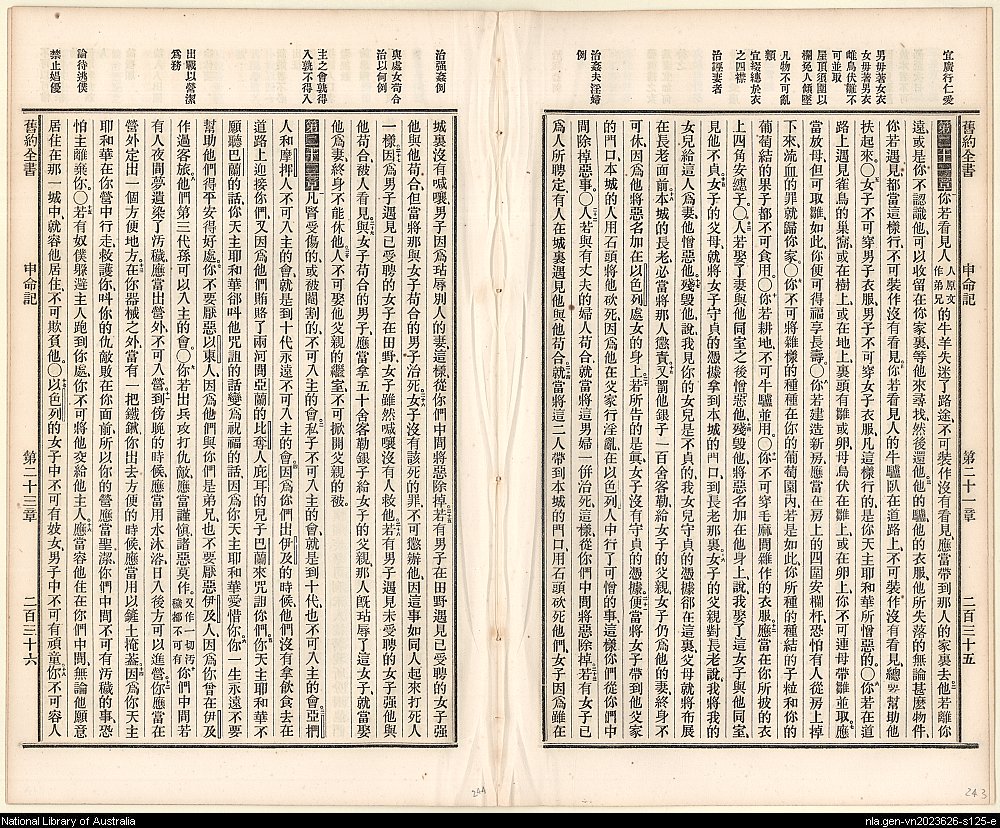 宜廣行仁愛
男毋著女衣
女毋著男衣
雌鳥伏雛不
可並取
屋頂須圍以
欄免人傾墜
凡物不可亂
類
宜綴繐於衣
之四襟
治誣妻者
治姦夫淫婦
例
舊約全書 申命記 第二十一章 二百三十五
第二十二章 你若看見人 人原文作弟兄 的牛羊失迷了路途、不可裝作沒有看見、應當帶到那人的家裏去、他若離你
遠、或是你不認識他、可以收留在你家裏、等他來尋找、然後還他、他的驢、他的衣服、他所失落的、無論甚麼物件、
你若遇見、都當這樣行、不可裝作沒有看見、你若看見人的牛驢臥在道路上、不可裝作沒有看見、總要幫助他
扶起來。〇女子不可穿男子衣服、男子不可穿女子衣服、凡這樣行的、是你天主耶和華所憎惡的。〇你若在道
路上遇見雀鳥的巢窩、或在樹上、或在地上、裏頭有雛或卵、母鳥伏在雛上、或在卵上、你不可連母帶雛並取、應
當放母、但可取雛、如此你便可得福享長壽。〇你若建造新房、應當在房上的四圍安欄杆、恐怕有人從房上掉
下來、流血的罪就歸你家。〇你不可將雜樣的種種在你的葡萄園內、若是如此、你所種的種結的子粒和你的
葡萄結的果子都不可食用。〇你若耕地、不可牛驢並用。〇你不可穿毛麻間雜作的衣服、應當在你所披的衣
上四角安繐子。〇人若娶了妻與他同室之後憎惡他、殘毀他、將惡名加在他身上、說、我娶了這女子與他同室、
見他不貞、女子的父母、就將女子守貞的憑據拿到本城的門口、到長老那裏、女子的父親對長老說、我將我的
女兒給這人爲妻、他憎惡他、殘毀他、說、我見你的女兒是不貞的、我女兒守貞的憑據郤在這裏、父母就將布展
在長老面前、本城的長老必當將那人懲責、又罰他銀子一百舍客勒、給女子的父親、女子仍爲他的妻、終身不
可休、因爲他將惡名加在以色列處女的身上、若所告的是眞、女子沒有守貞的憑據、便當將女子帶到他父家
的門口、本城的人用石頭將他砍死、因爲他在父家行淫亂、在以色列人中行了可憎的事、這樣你們從你們中
間除掉惡事。〇人若與有丈夫的婦人苟合、就當將這男婦一併治死、這樣從你們中間將惡除掉、若有女子已
爲人所聘定、有人在城裏遇見他、與他苟合、就當將這二人帶到本城的門口、用石頭砍死他們、女子因爲雖在
治强姦例
與處女苟合
治以何例
主之會孰得
入孰不得入
出戰以營潔
爲務
論待逃僕
禁止娼優
城裏沒有喊嚷、男子因爲玷辱別人的妻、這樣從你們中間將惡除掉、若有男子在田野遇見已受聘的女子、强
他與他苟合、但當將那與女子苟合的男子治死、女子沒有該死的罪、不可懲辦他、因這事如同人起來打死人
一樣、因爲男子遇見已受聘的女子在田野、女子雖然喊嚷、沒有人救他、若有男子遇見未受聘的女子、强他與
他苟合、被人看見、與女子苟合的男子、應當拿五十舍客勒銀子給女子的父親、那人旣玷辱了這女子、就當娶
他爲妻、終身不能休他、人不可娶他父親的繼室、不可掀開父親的被。
第二十三章 凡腎受傷的、或被閹割的、不可入主的會、私子不可入主的會、就是到十代也不可入主的會、亞捫
人和摩押人不可入主的會、就是到十代、永遠不可入主的會、因爲你們出伊及的時候、他們沒有拿飲食去在
道路上迎接你們、又因爲他們賄賂了兩河間亞蘭的比奪人庇耳的兒子巴蘭來咒詛你們、你天主耶和華不
願聽巴蘭的話、你天主耶和華郤呌他咒詛的話變爲祝福的話、因爲你天主耶和華愛惜你、你一生永遠不要
幫助他們得平安得好處、你不要厭惡以東人、因爲他們與你們是弟兄、也不要厭惡伊及人、因爲你曾在伊及
作過客旅、他們第三代孫可以入主的會。〇你若出兵攻打仇敵、應當謹愼、諸惡莫作、又作一切汚穢都不可有 你們中間若
有人夜間夢遺染了汚穢、應當出營外、不可入營、到傍晚的時候、應當用水沐浴、日入後方可以進營、你應當在
營外定出一個方便地方、在你器械之外當有一把鐵鍬、你出去方便的時候、應當用以鏟土掩蓋、因爲你天主
耶和華在你營中行走、救護你、呌你的仇敵敗在你面前、所以你的營應當聖潔、你們中間不可有汚穢的事、恐
怕主離棄你。〇若有奴僕躱避主人跑到你處、你不可將他交給他主人、應當容他住在你們中間、無論他願意
居住在那一城中、就容他居住、不可欺負他。〇以色列的女子中不可有妓女、男子中不可有頑童、你不可容人
舊約全書 申命記 第二十三章 二百三十六
244
243
National Library of Australia
nla.gen-vn2023626-s125-e